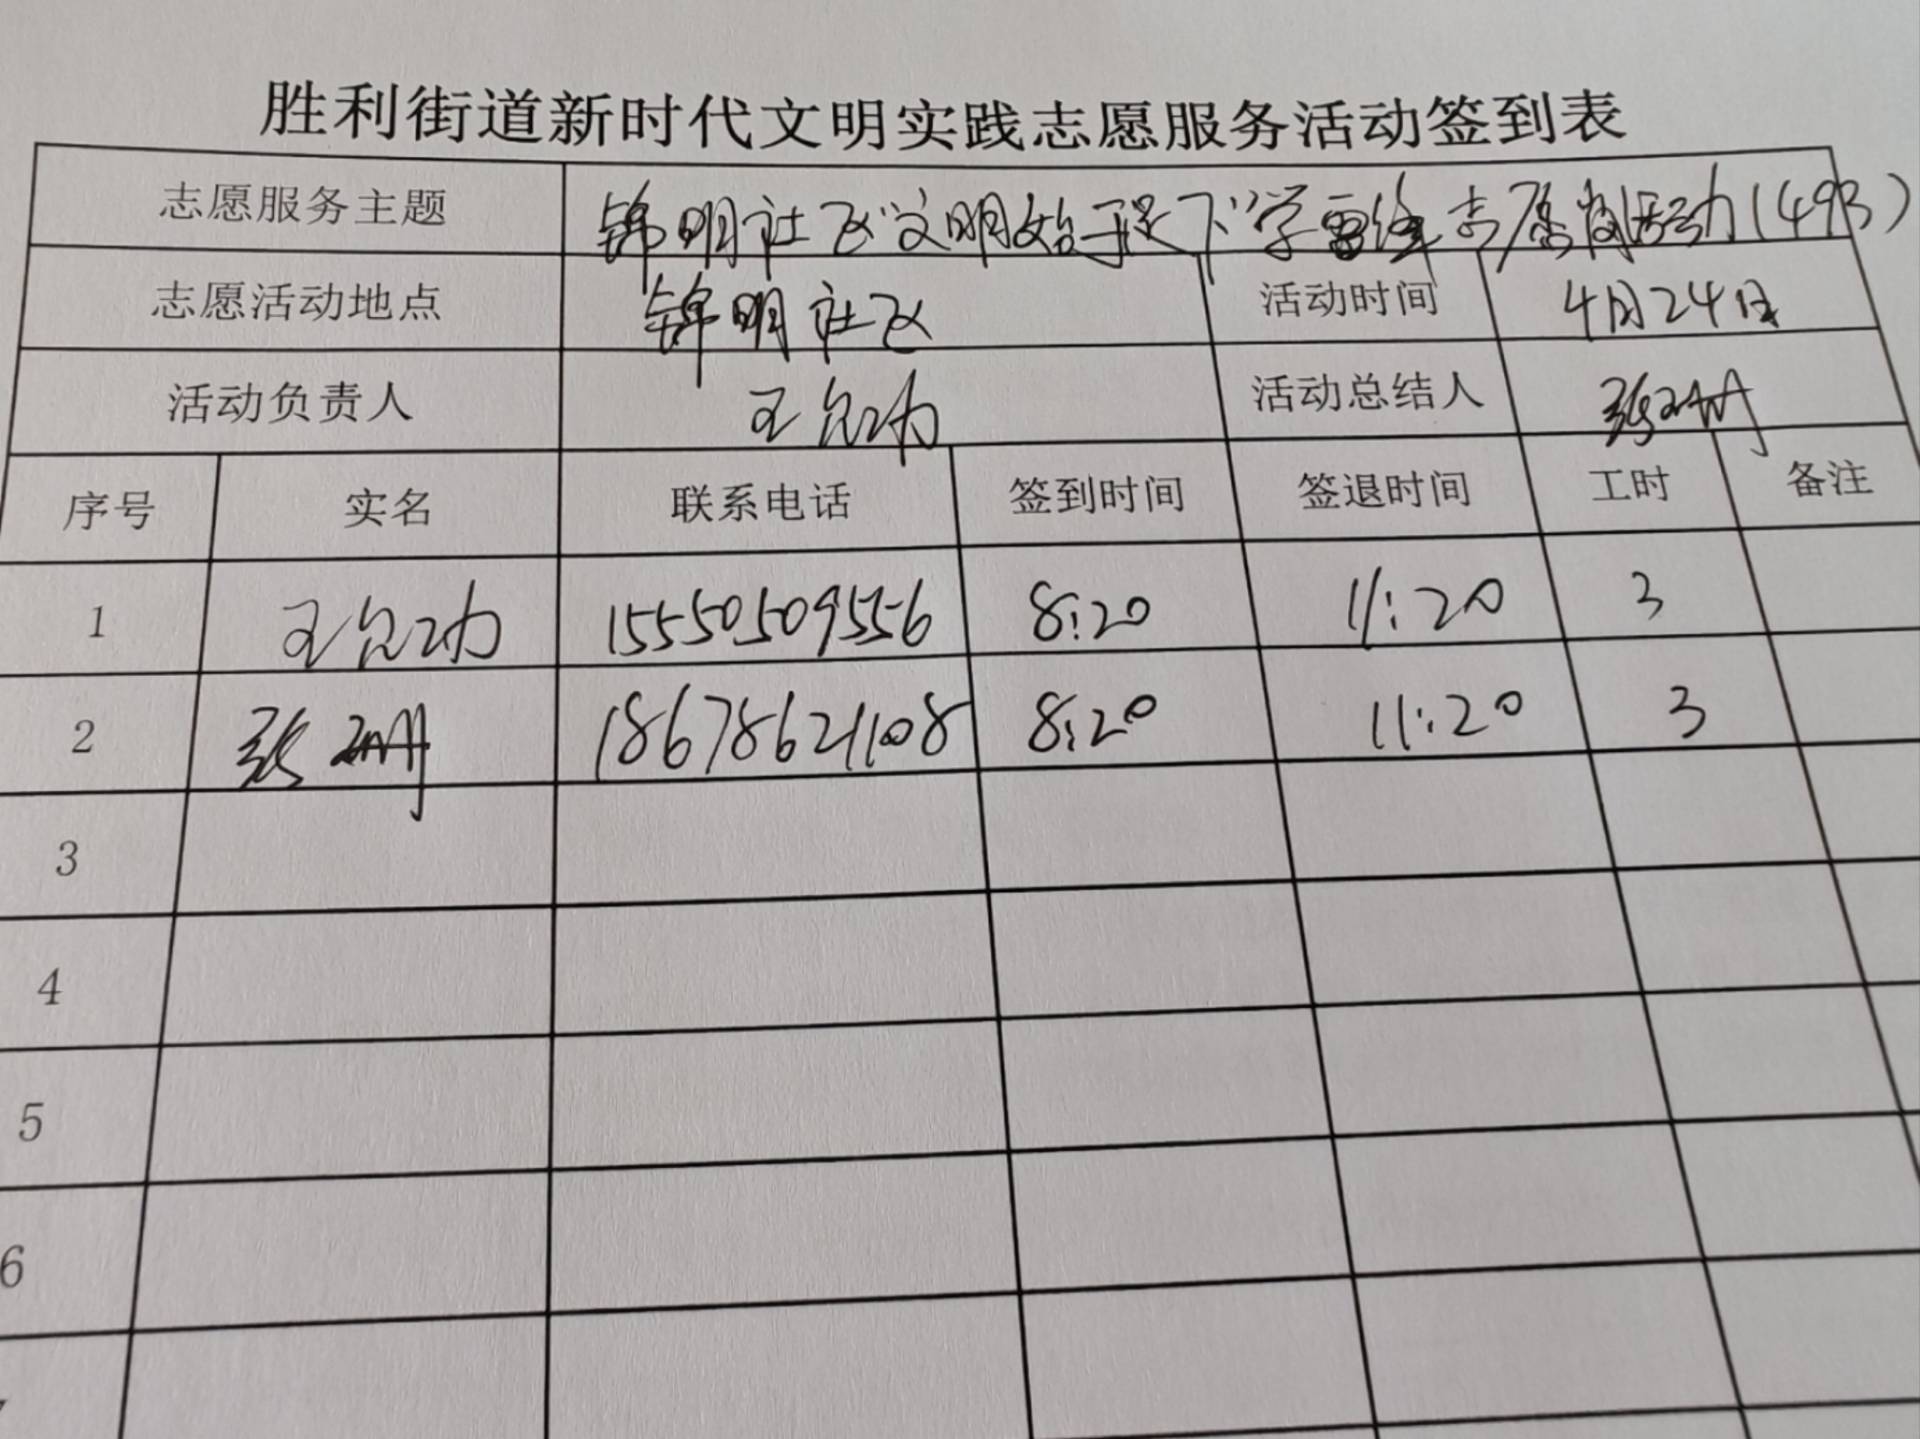 胜利街道新时代文明实践志愿服务活动签到表
志愿服务主题 锦明社区文明始于足下学雷锋志愿服务活动(493)
志愿活动地点 锦明社区 活动时间 4月24日
活动负责人 王允功 活动总结人 张珊
序号 实名 联系电话 签到时间 签退时间 工时 备注
1 王允功 15550509556 8:20 11:20 3
2 张珊 18678621108 8:20 11:20 3
3
4
5
6